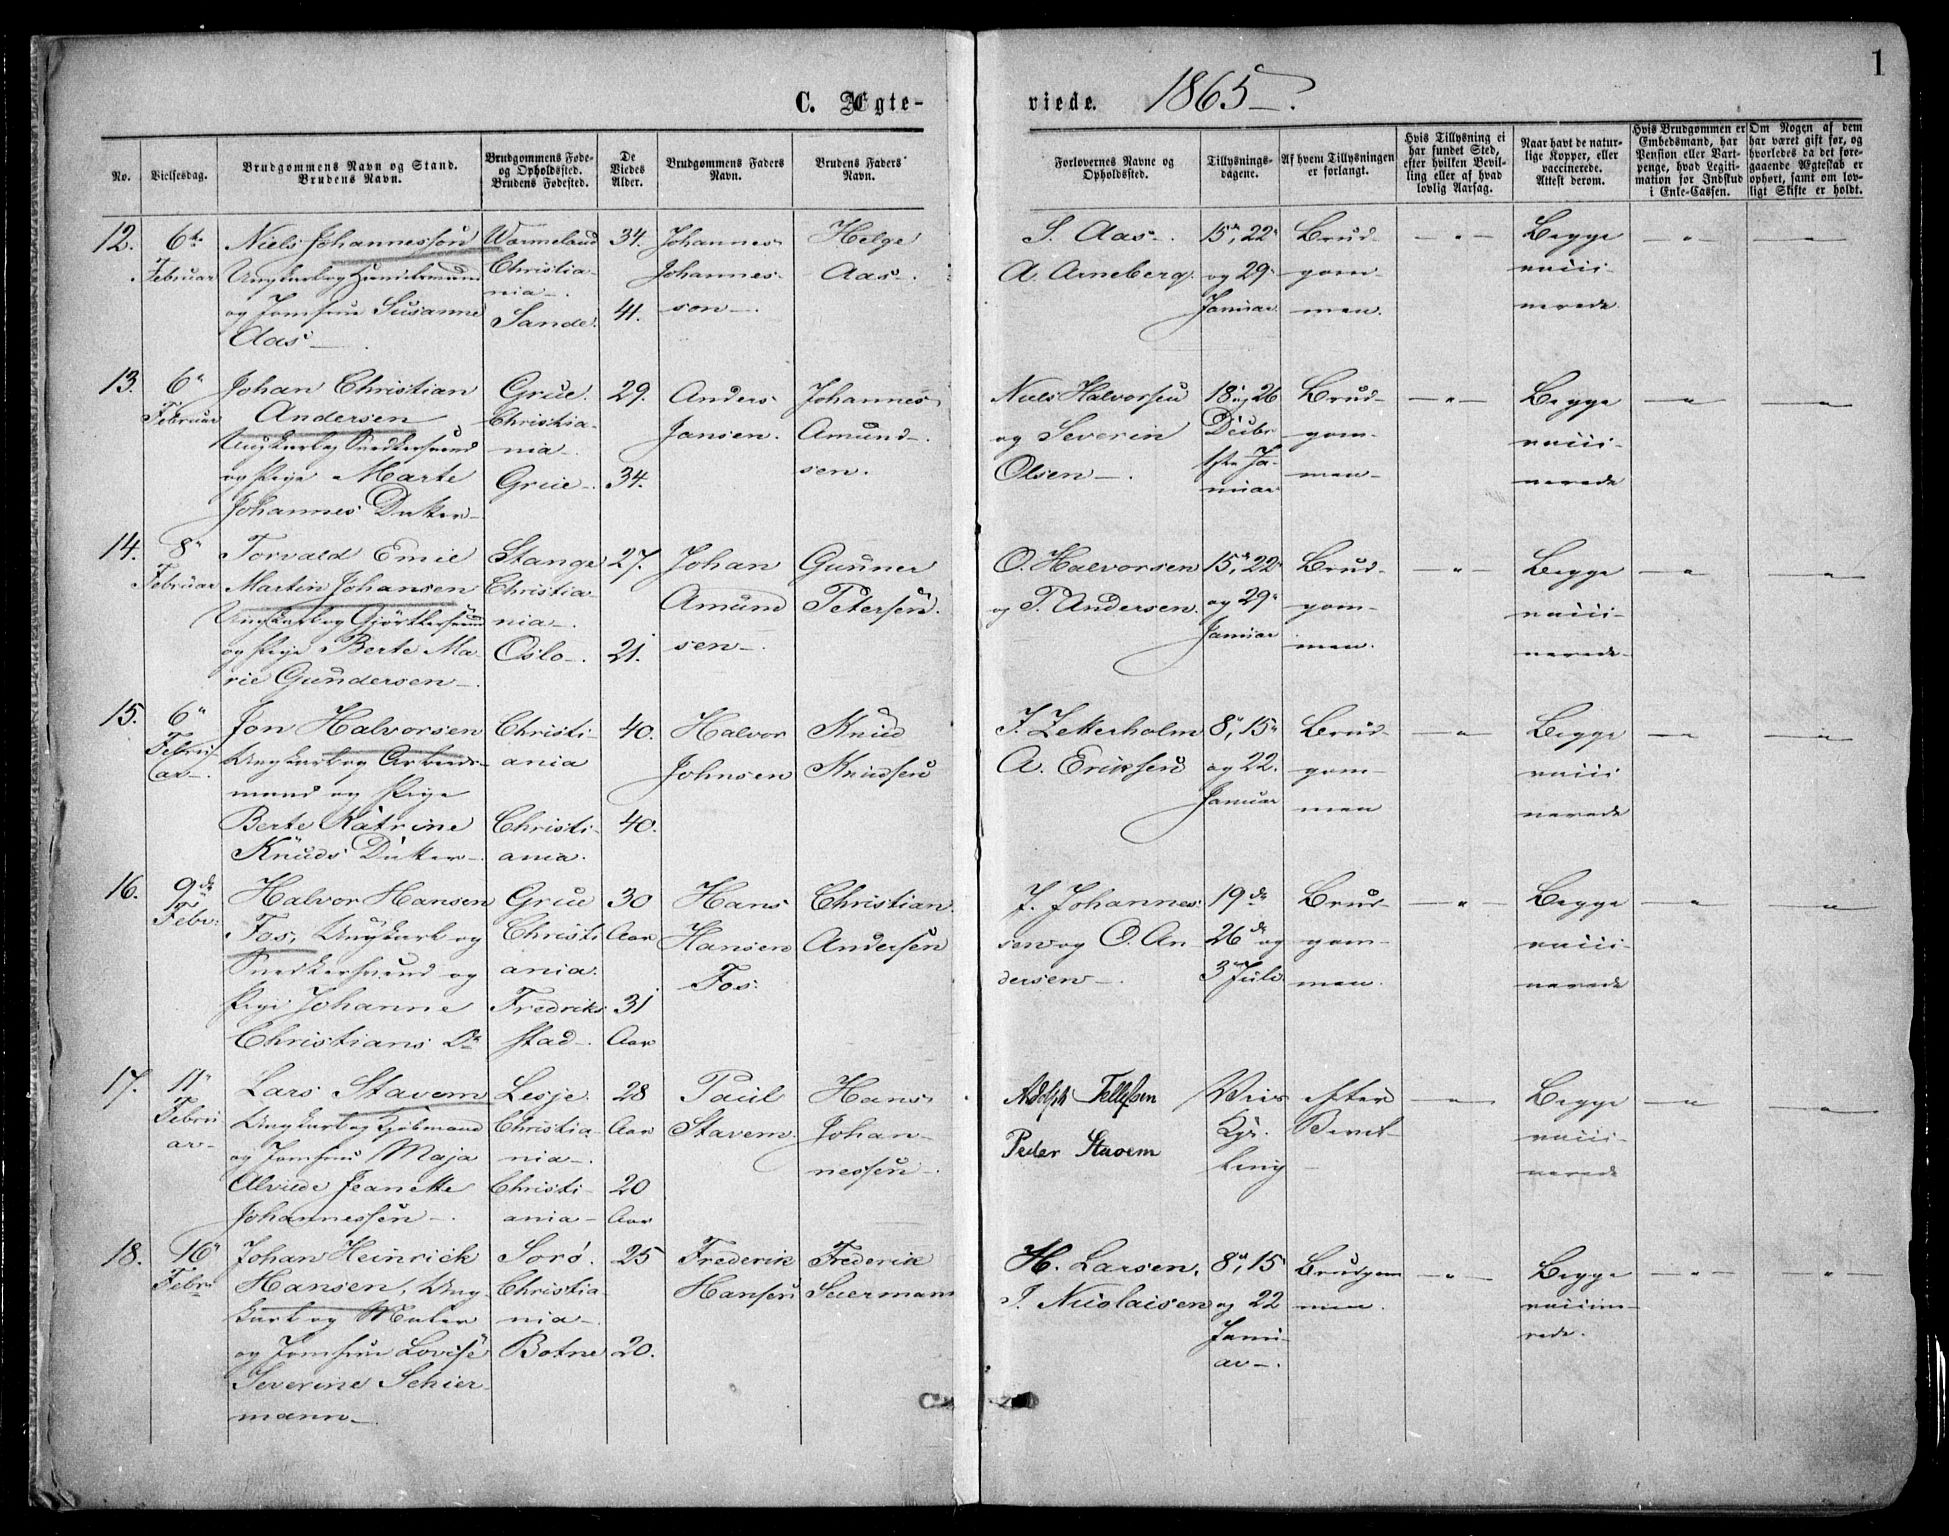 1
C. Ægte-
viede. 1865.
No.
Vielsesdag.
Brudgommens Navn og Stand.
Brudens Navn.
Brudgommens Føde-
og Opholdssted.
Brudens Fødested.
De
Viedes
Alder.
Brudgommens Faders
Navn.
Brudens Faders
Navn.
Forlovernes Navne og
Opholdssted.
Tillysnings-
dagene.
Af hvem Tillysningen
er forlangt.
Hvis Tillysning ei
har fundet Sted,
efter hvilken Bevil-
ling eller af hvad
lovlig Aarsag.
Naar havt de natur-
lige Kopper, eller
vaccinerede.
Attest derom.
Hvis Brudgommen er
Embedsmand, har
Pension eller Vart-
penge, hvad Legiti-
mation for Indskud
i Enke-Cassen.
Om Nogen af dem
har været gift før, og
hvorledes da det fore-
gaaende Ægteskab er
ophørt, samt om lov-
ligt Skifte er holdt.
12.
6te
Februar
Niels Johannesson
Ungkarl og
og Jomfrue Susanne
Aas
Wermeland
Christia-
nia
Sande.
34.
41.
Johannes
Johannes
son
Helge
Aas
S. Aas
A. Arneberg.
15de, 22
og 29
Januar
Brud-
gom-
men.
Begge
vacci-
nerede
13.
6
Februar
Johan Christian
Andersen
Ungkarl og Snedkersvend
og Pige Marte
Johannes Datter
Grue.
Christia-
nia
Grue
29.
34.
Anders
Jansen.
Johannes
Amund-
sen.
Niels Halvorsen
og Severin
Olsen
18 og 26
Decbr
1ste Ja-
nuar
Brud-
gom-
men
Begge
vacci-
nerede
14.
8
Februar
Torvald Emil
Martin Johansen
Ungkarl og Gjørtlersvend
og Pige Berte Ma-
rie Gundersen
Stange
Christia-
nia
Oslo
27.
21.
Johan
Amund
sen
Gunner
Petersen.
O. Halvorsen
og P. Andersen.
15de, 22
og 29
Januar
Brud-
gom-
men.
Begge
vacci-
nerede
15.
6
Febru-
ar
Jon Halvorsen
Ungkarl og Arbeids-
mand og Pige
Berte Katrine
Knuds Datter
Christi
ania
Christi-
ania.
40.
40.
Halvor
Johnsen
Knud
Knudsen
J. Zetterholm
A. Eriksen
8, 15
og 22.
Januar
Brud-
gom-
men
Begge
vacci
nerede
16.
9de
Febr:
Halvor Hansen
Fos, Ungkarl og
Snedkersvend og
Pige Johanne
Christians Dr
Grue
Christi
ania.
Fredriks
stad
30
Aar
31
Aar
Hans
Hansen
Fos.
Christian
Andersen
J. Johannes
sen og O. An
dersen
19de
26de og
3 Juli
Brud-
gom-
men.
Begge
vacci-
nerede
17.
11
Febru
ar
Lars Stavem
Ungkarl og Kjøbmand
og Jomfrue Maja
Alvilde Jeanette
Johannessen
Lesje
Christia-
nia
Christi-
ania
28
Aar
20
Aar
Paul
Stavem.
Hans
Johan-
nessen
Adolph Tellefsen
Peder Stavem
Viet efter
Kgl. Bevil-
ling
Begge
vacci-
nerede
18.
16
Febr
Johan Heinrich
Hansen, Ung-
karl og Maler
og Jomfrue Lovise
Severine Schier-
mann
Sorø.
Christia-
nia
Botne
25
20.
Frederik
Hansen
Frederik
Sciermann
H. Larsen,
J. Nicolaisen
8, 15
og 22
Janu-
ar
Brudgom
men.
Begge
vaccine-
rede.